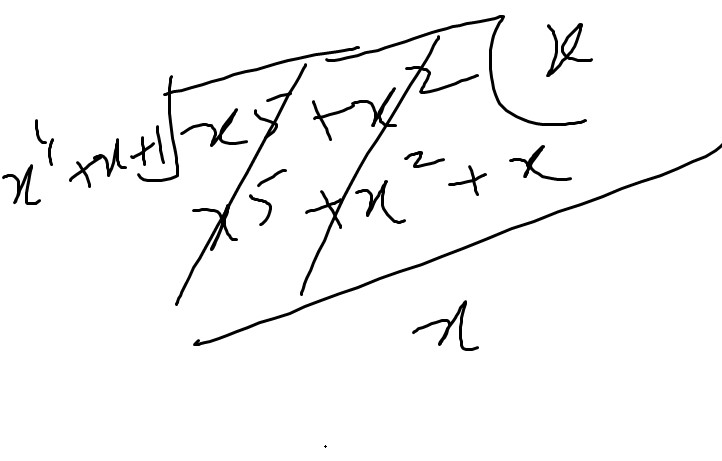 x⁴+x+1 x⁵+x² x
x⁵+x²+x
x